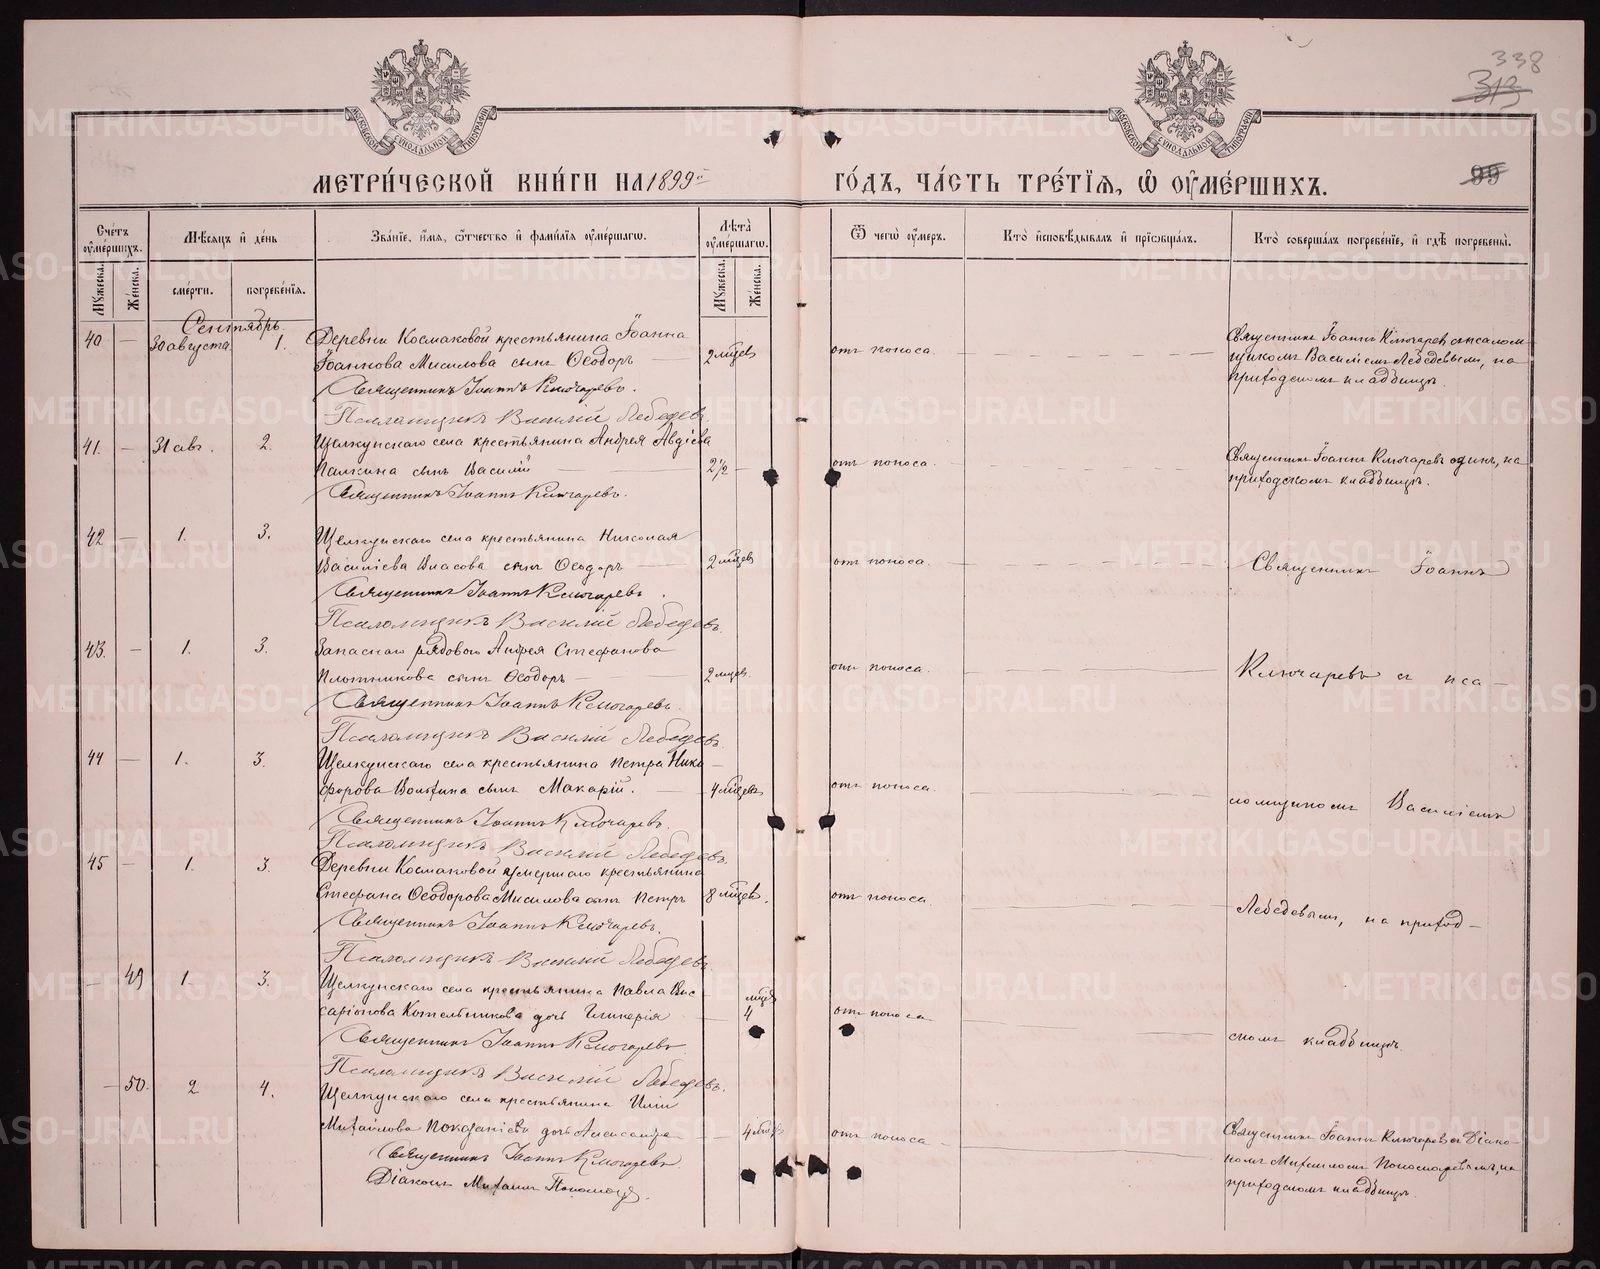 338
313
99
МОСКОВСКОЙ СѴНОДАЛЬНОЙ ТИПОГРАФІИ
МОСКОВСКОЙ СѴНОДАЛЬНОЙ ТИПОГРАФІИ
МЕТРИЧЕСКОЙ КНИГИ НА 1899й ГОДЪ, ЧАСТЬ ТРЕТІЯ, Ѿ ОУМЕРШИХЪ.
Счетъ оумершихъ.
Мужеска.
Женска.
Мѣсяцъ и день
смерти.
погребенія.
Званіе, имя, отчество и фамилія оумершагѡ.
Лѣта оумершагѡ.
Мужеска.
Женска.
Ѿ чегѡ оумеръ.
Кто исповѣдывалъ и пріобщалъ.
Кто совершалъ погребеніе, и гдѣ погребены.
Сентябрь.
40 — 30 августа 1. Деревни Космаковой крестьянина Іоанна
Іоаннова Мисилова сынъ Ѳеодоръ — 2 мѣсцев отъ поноса.
Священникъ Іоаннъ Ключаревъ.
Псаломщикъ Василій Лебедевъ.
Священникъ Іоаннъ Ключаревъ с псалом-
щикомъ Василіемъ Лебедевымъ, на
приходскомъ кладбищѣ.
41. — 31 авг. 2. Щелкунскаго села крестьянина Андрея Авдіева
Палкина сынъ Василій — 2½ — отъ поноса.
Священникъ Іоаннъ Ключаревъ.
Священникъ Іоаннъ Ключаревъ одинъ, на
приходскомъ кладбищѣ.
42 — 1. 3. Щелкунскаго села крестьянина Николая
Василіева Власова сынъ Ѳеодоръ — 2 мѣсцев отъ поноса.
Священникъ Іоаннъ Ключаревъ.
Псаломщикъ Василій Лебедевъ.
Священникъ Іоаннъ
43. — 1. 3. Запаснаго рядового Андрея Стефанова
Плотникова сынъ Ѳеодоръ — 2 мѣсцев. отъ поноса.
Священникъ Іоаннъ Ключаревъ.
Псаломщикъ Василій Лебедевъ.
Ключаревъ съ пса-
44 — 1. 3. Щелкунскаго села крестьянина Петра Ники-
форова сынъ Макарій. — 4 мѣсцевъ отъ поноса.
Священникъ Іоаннъ Ключаревъ.
Псаломщикъ Василій Лебедевъ.
ломщикомъ Василіемъ
45 — 1. 3. Деревни Космаковой умершаго крестьянина
Стефана Ѳеодорова Мисилова сынъ Петръ 8 мѣсцев. отъ поноса.
Священникъ Іоаннъ Ключаревъ.
Псаломщикъ Василій Лебедевъ
Лебедевымъ, на приход-
— 49 1. 3. Щелкунскаго села крестьянина Павла Вис
саріонова Котельникова дочь Гликерія — мѣсц 4 отъ поноса
Священникъ Іоаннъ Ключаревъ
Псаломщикъ Василій Лебедевъ.
скомъ кладбищѣ.
— 50. 2 4. Щелкунскаго села крестьянина Иліи
Михаилова дочь Александра — 4 мѣсц отъ поноса
Священникъ Іоаннъ Ключаревъ.
Діаконъ Михаилъ Пономарев.
Священникъ Іоаннъ Ключаревъ с Діако-
номъ Михаиломъ Пономаревымъ, на
приходскомъ кладбищѣ.
METRIKI.GASO-URAL.RU